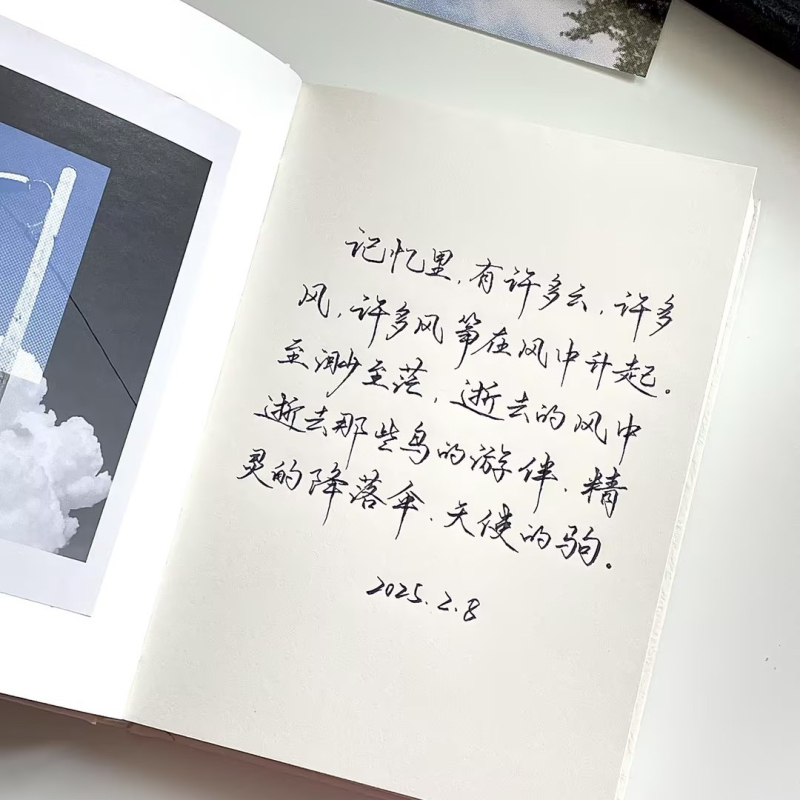 记忆里，有许多云，许多
风，许多风筝在风中升起。
至渺至茫，逝去的风中
逝去那些鸟的游伴、精
灵的降落伞、天使的驹。
2025.2.8